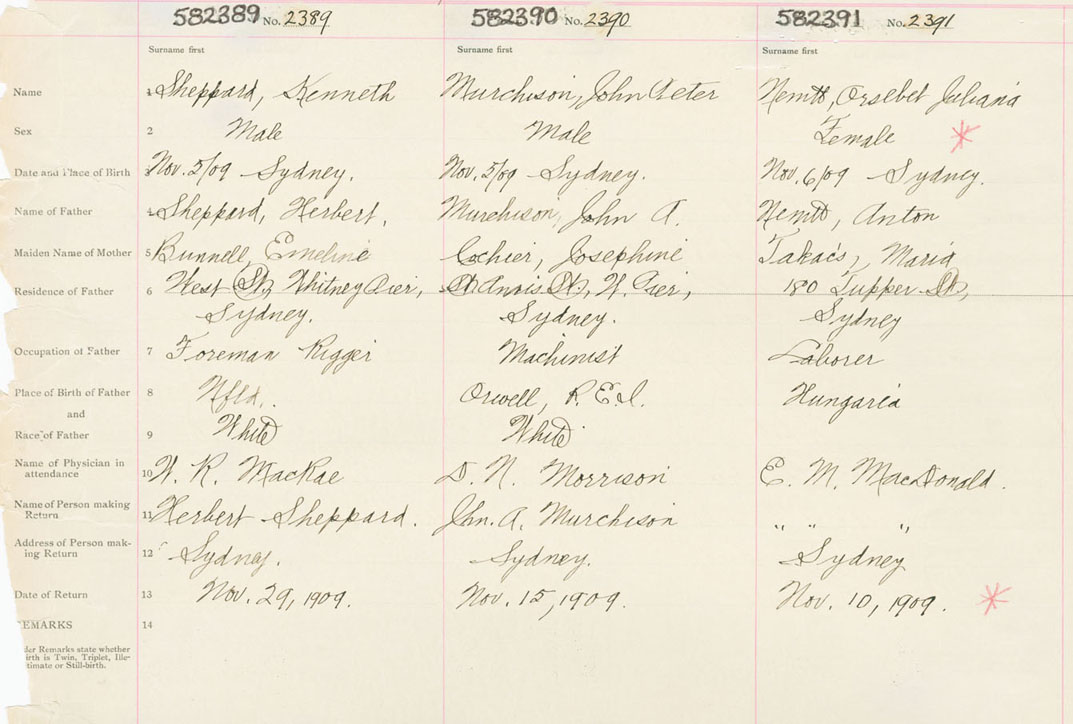 582389 No. 2389 582390 No. 2390 582391 No. 2391
Surname first Surname first Surname first
Name 1 Sheppard, Kenneth Murchison, John Peter Orsebet Juliana
Sex 2 Male Male Female *
Date and Place of Birth 3 Nov. 5/09 Sydney. Nov. 5/09 Sydney. Nov. 6/09 Sydney.
Name of Father 4 Sheppard, Herbert. Murchison, John A. Anton
Maiden Name of Mother 5 Bunnell, Emeline Josephine Takács, Maria
Residence of Father 6 West St, Whitney Pier, St, W. Pier, 180 Tupper St,
Sydney. Sydney. Sydney
Occupation of Father 7 Foreman Rigger Machinist Laborer
Place of Birth of Father 8 Nfld. Orwell, P.E.I. Hungaria
and
Race of Father 9 White White
Name of Physician in attendance 10 W. R. MacRae D. N. Morrison E. M. MacDonald.
Name of Person making Return 11 Herbert Sheppard. Jhn. A. Murchison " " "
Address of Person mak-
ing Return 12 Sydney. Sydney. Sydney
Date of Return 13 Nov. 29, 1909. Nov. 15, 1909. Nov. 10, 1909. *
EMARKS 14
der Remarks state whether
irth is Twin, Triplet, Ille-
timate or Still-birth.